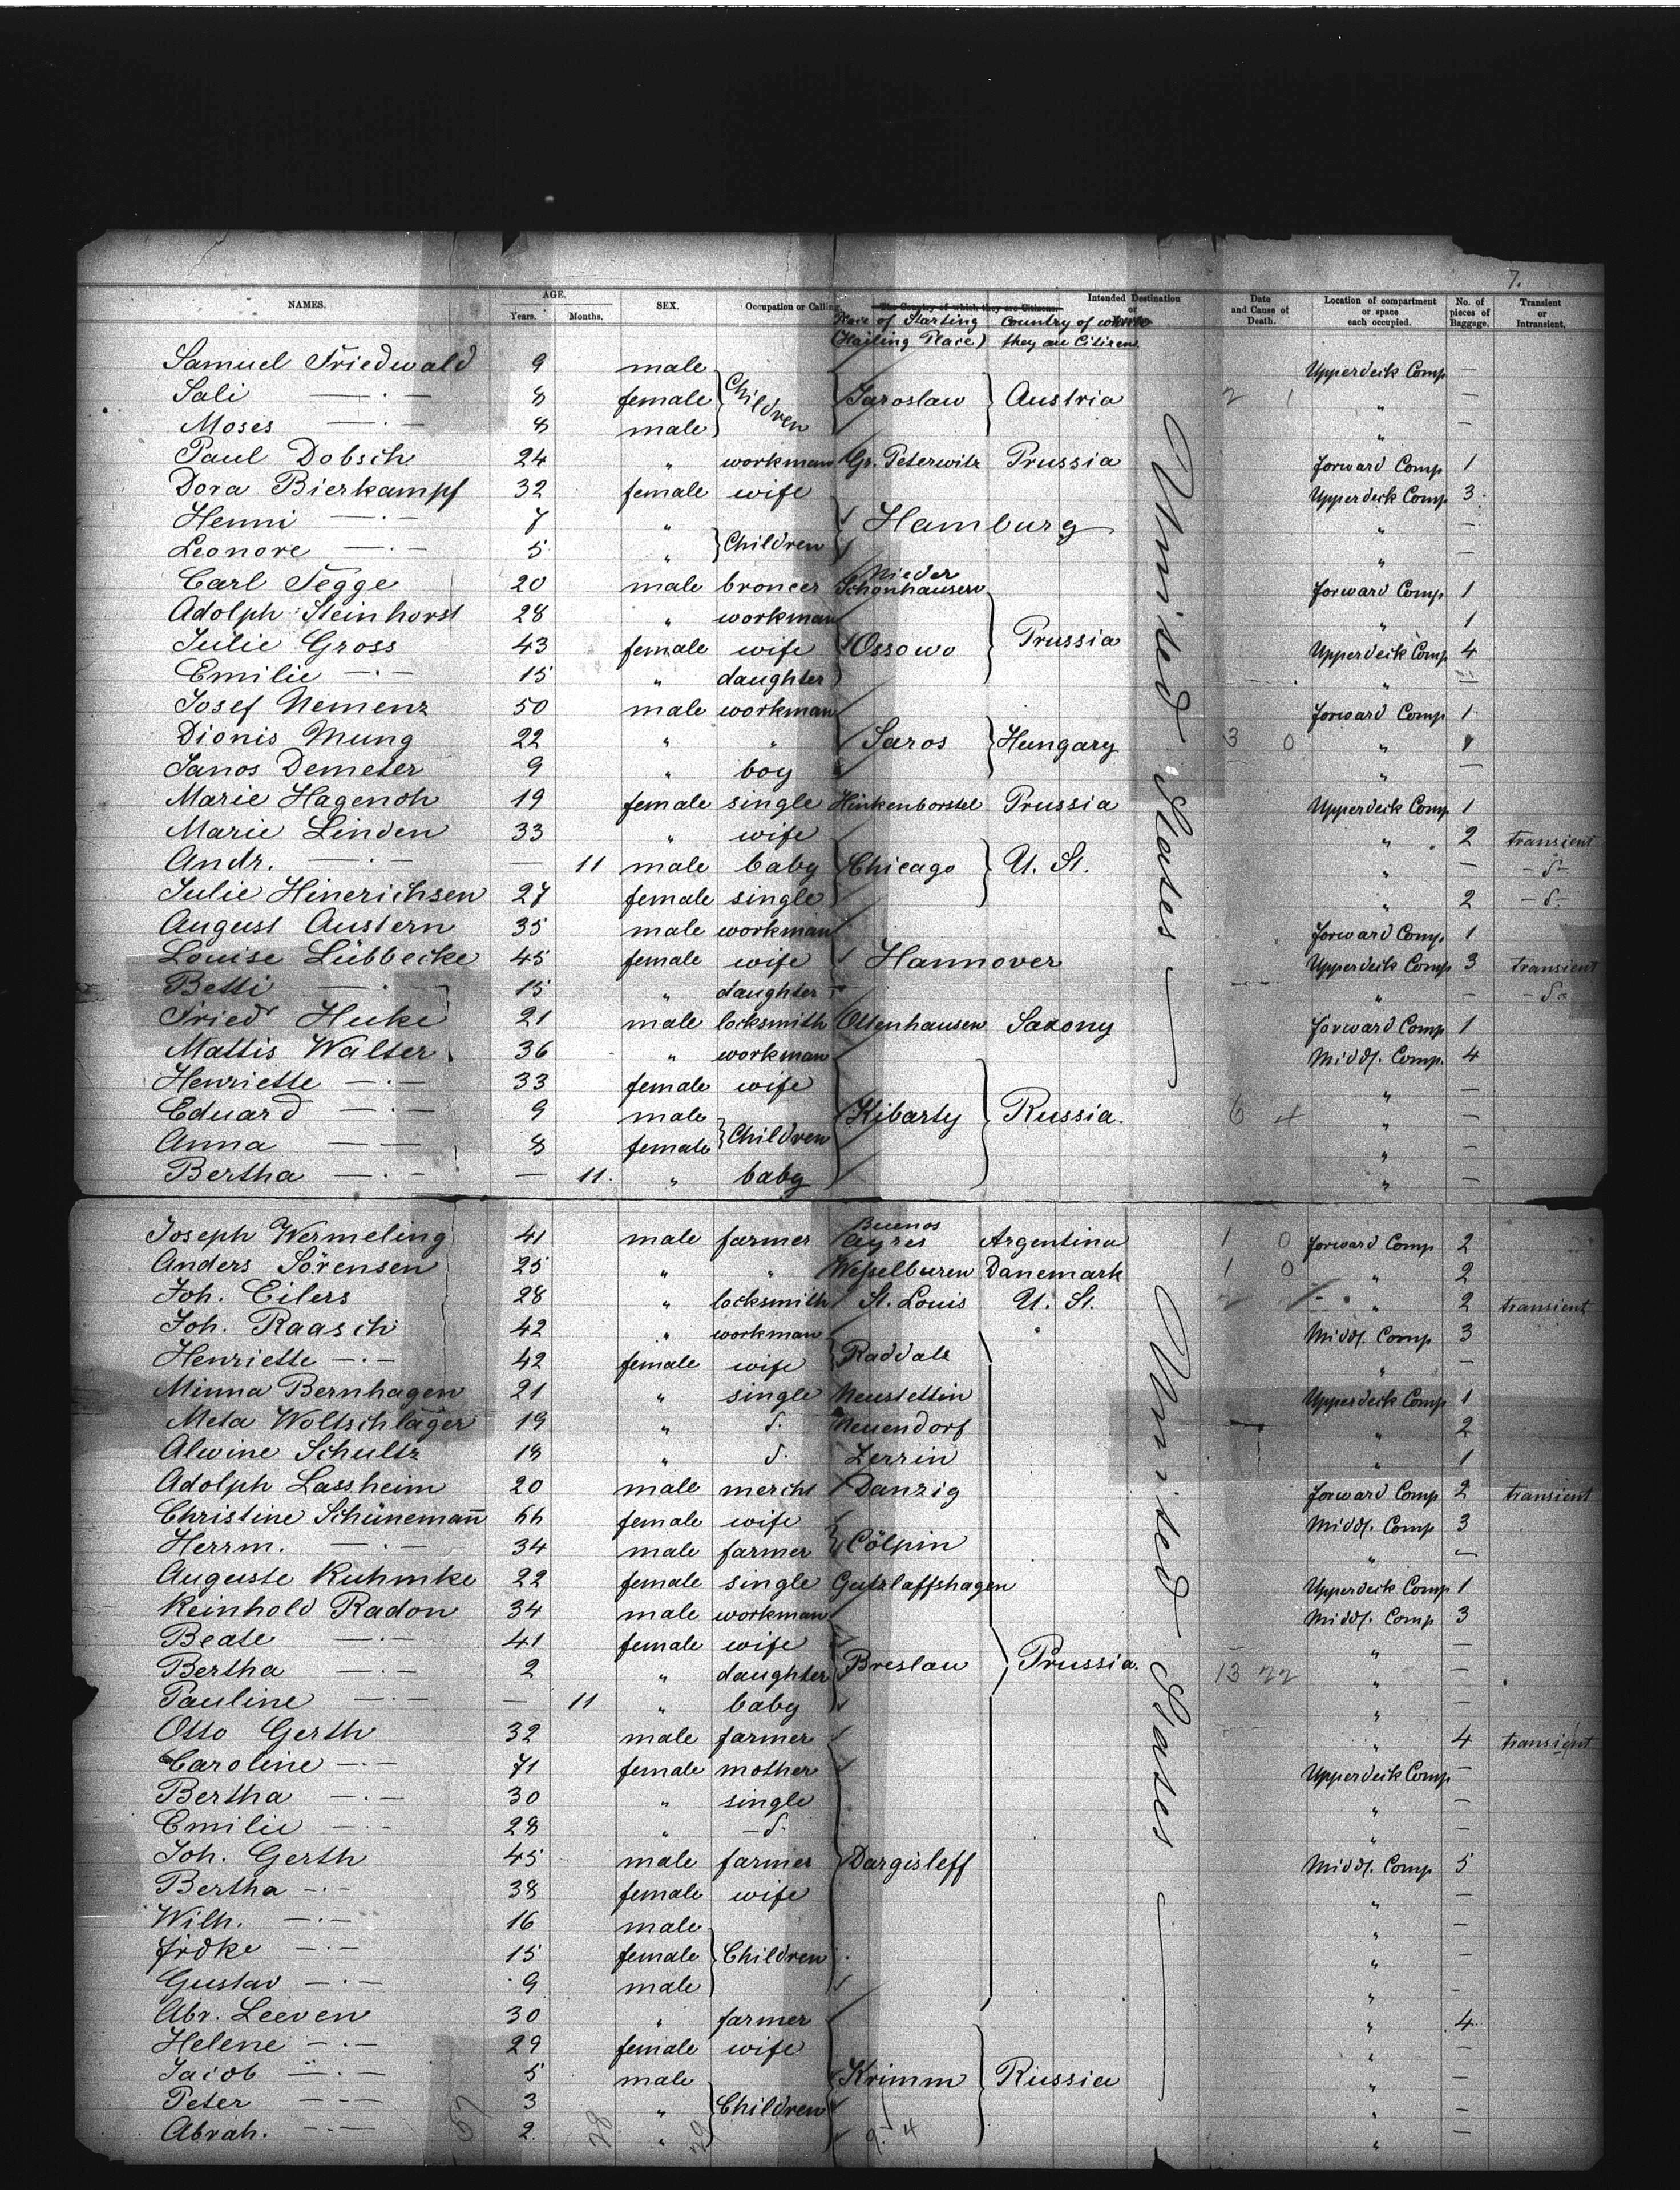 7.
NAMES. AGE. Years. Months. SEX. Occupation or Calling The Country of which they are Citizens Intended Destination or Date and Cause of Death. Location of compartment or space each occupied. No. of pieces of Baggage. Transient or Intransient.
Place of Starting Country of which
(Hailing Place) they are Citizen
Samuel Friedwald 9 male Upperdeck Comp —
Sali —·— 8 female Children Jaroslaw Austria 2 1 " —
Moses —·— 8 male " —
Paul Dobsch 24 " workman Gr. Peterwitz Prussia forward Comp 1
Dora Bierkampf 32 female wife Upperdeck Comp 3
Henni —·— 7 " Hamburg " —
Leonore —·— 5 " Children " —
Carl Tegge 20 male broncer Nieder Schönhausen forward Comp 1
Adolph Steinhorst 28 " workman " 1
Julie Gross 43 female wife Ossowo Prussia Upperdeck Comp 4
Emilie —·— 15 " daughter " —
Josef Nemenz 50 male workman forward Comp 1
Dionis Mung 22 " " Saros Hungary 3 0 " 1
Janos Demeter 9 " boy " —
Marie Hagenoh 19 female single Hinkenborstel Prussia Upperdeck Comp 1
Marie Linden 33 " wife " 2 transient
Andr. —·— — 11 male baby Chicago U. St. " — -d-
Julie Hinerichsen 27 female single " 2 -d-
August Austern 35 male workman forward Comp. 1
Louise Lübbecke 45 female wife Hannover Upperdeck Comp 3 transient
Betti —·— 15 " daughter " — -do
Friedr Huke 21 male locksmith Ottenhausen Saxony forward Comp 1
Mattis Walter 36 " workman Middl. Comp. 4
Henriette —·— 33 female wife " —
Eduard —·— 9 male Kibarty Russia. 6 4 " —
Anna — — 8 female Children " —
Bertha —·— — 11. " baby " —
United States
Joseph Wermeling 41 male farmer Buenos Ayres Argentina 1 0 forward Comp 2
Anders Sörensen 25 " " Wesselburen Danemark 1 0 " 2
Joh. Eilers 28 " locksmith St. Louis U. St. 2 " 2 transient
Joh. Raasch 42 " workman Middl. Comp 3
Henriette —·— 42 female wife Raddatz " —
Minna Bernhagen 21 " single Neustettin Upperdeck Comp 1
Meta Woltschläger 19 " d. Neuendorf " 2
Alwine Schultz 18 " d. Zerrin " 1
Adolph Lassheim 20 male mercht Danzig forward Comp 2 transient
Christine Schünemann 66 female wife Middl. Comp 3
Herrm. —·— 34 male farmer Cölpin " —
Auguste Kuhmke 22 female single Gutzlaffshagen Upperdeck Comp 1
Reinhold Radon 34 male workman Middl. Comp 3
Beate —·— 41 female wife " —
Bertha —·— 2 " daughter Breslau Prussia. 13 22 " —
Pauline —·— — 11 " baby " —
Otto Gerth 32 male farmer " 4 transient
Caroline —·— 71 female mother Upperdeck Comp —
Bertha —·— 30 " single " —
Emilie —·— 28 " -d- " —
Joh. Gerth 45 male farmer Dargisleff Middl. Comp 5
Bertha —·— 38 female wife " —
Wilh. —·— 16 male " —
Frdke —·— 15 female Children " —
Gustav —·— 9 male " —
Abr. Leeven 30 " farmer " 4
Helene —·— 29 female wife " —
Jacob —·— 5 male Krimm Russia " —
Peter — — 3 " Children " —
Abrah. —·— 2. " 9. 4 "
United States